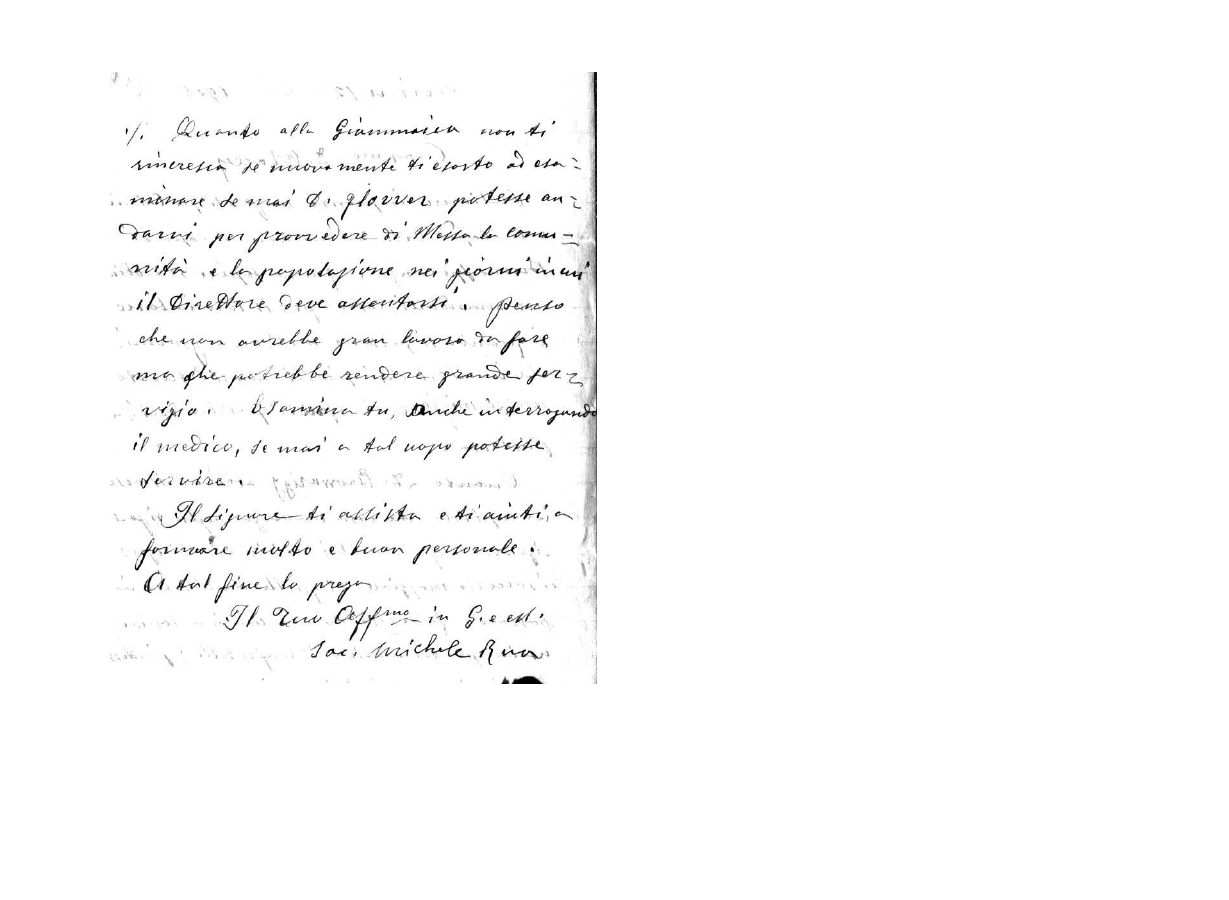 ./. Quanto alla Giammaica non ti
rincresca se nuovamente ti esorto ad esa=
minare se mai D. Glovver potesse an=
darvi per provvedere di Messa la comu=
nità e la popolazione nei giorni in cui
il Direttore deve assentarsi. Penso
che non avrebbe gran lavoro da fare
ma che potrebbe rendere grande ser=
vizio. Esamina tu, anche interrogando
il medico, se mai a tal uopo potesse
servire.
Il Signore ti assista e ti aiuti a
formare molto e buon personale.
A tal fine lo prega
Il Tuo Affmo in G. e M.
Sac. Michele Rua